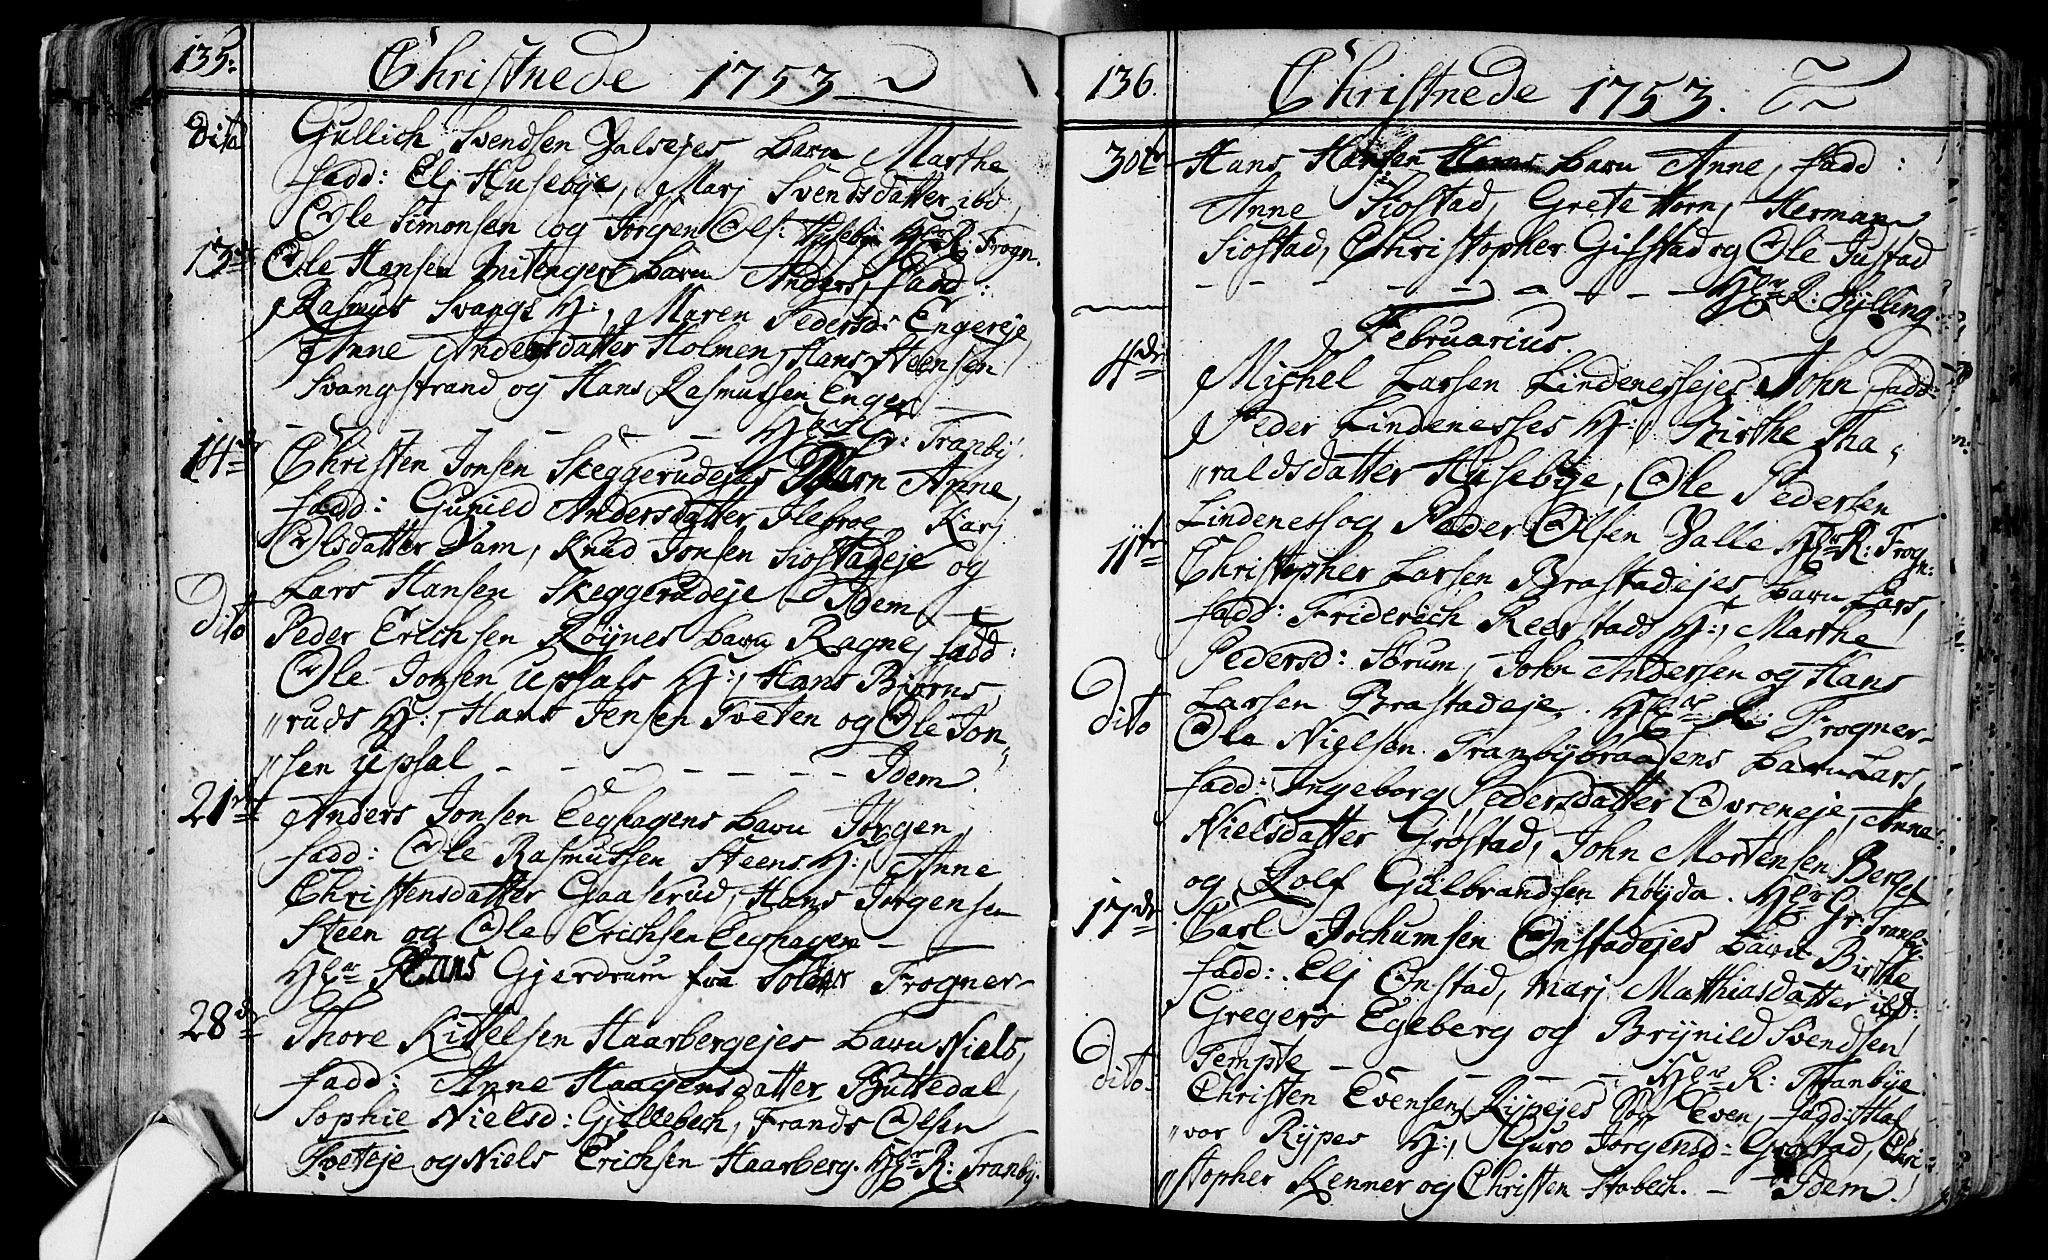 135.
Christnede 1753
Dito Gullich Svendsen Valsejes barn Marthe
fadd: Elj Husebye, Marj Svendsdatter ibd,
Ole Simonsen og Jørgen Ols: Husebye Hr R: Frogn.
13de Ole Hansen barn Anders, fadd:
Rasmus Svangs H:, Maren Pedersd: Engereje
Anne Andersdatter Holmen, Hans Steensen
Svangstrand og Hans Rasmussen Enger
- - - - - Gr: Tranby.
14de Christen Jonsen Skeggerudejes Barn Anne,
fadd: Gunild Andersdatter Ilebroe, Karj
Olsdatter Dam, Knud Jonsen Siostadeje og
Lars Hansen Skeggerudeje - Idem -
Dito Peder Erichsen Røijnes barn Ragne, fadd:
Ole Jonsen Upsals H:, Hans Biørns,
"ruds H:, Hans Jensen Tveten og Ole Jon,,
"sen Upsal - - - - - - - Idem.
21de Anders Jonsen Eeghagens barn Jørgen,
fadd: Ole Rasmussen Steens H:, Anne
Christensdatter Gaaserud, Hans Jørgensen
Steen og Ole Erichsen Eeghagen - -
Hans Gjerdrum fra Soldør Frogner-
28de Thore Kittelsen Haarbergejes barn Niels,
fadd: Anne Haagensdatter Buttedal,
Sophie Nielsd: Gjellebech, Frands Olsen
Tveteje og Niels Erichsen Haarberg. R: Tranby.
136.
Christnede 1753.
30te Hans Hansen barn Anne, fadd:
Anne Siostad, Grete Horn, Herman
Siostad, Christopher Gilstad og Ole Justad
- - - - - - - - R: Sylling.
Februarius
4de Michel Larsen Lindenessejes John fadd:
Peder Lindenesses H:, Birthe Tha,,
"raldsdatter Husebye, Ole Pedersen
Lindeness og Peder Olsen Valle R: Frogn:
11te Christopher Larsen Brastadejes barn Lars,
fadd: Friderich Reerstads H:, Marthe
Pedersd: Sørum, John Andersen og Hans
Larsen Brastadeje. R: Frogner-
Dito Ole Nielsen Tranbybraadens barn Lars,
fadd: Ingeborg Pedersdatter Ovreneje, Anne
Nielsdatter Grøstad, John Mortensen Berg
og Rolf Gulbrandsen høyda. Gr: Tranby.
17de Carl Jochumsen Onstadejes barn Birthe
fadd: Elj Onstad, Marj Mathiasdatter ibd:
Gregers Egeberg og Brynild Svendsen
Tempte - - - - - R: Tranbye.
Dito Christen Evensen Rypejes Søn Even, fadd: Hal
"vor Rypes H:, Guro Jørgensd: Grøstad, Chri-
"stopher Kenner og Christen Stabech. - Idem.